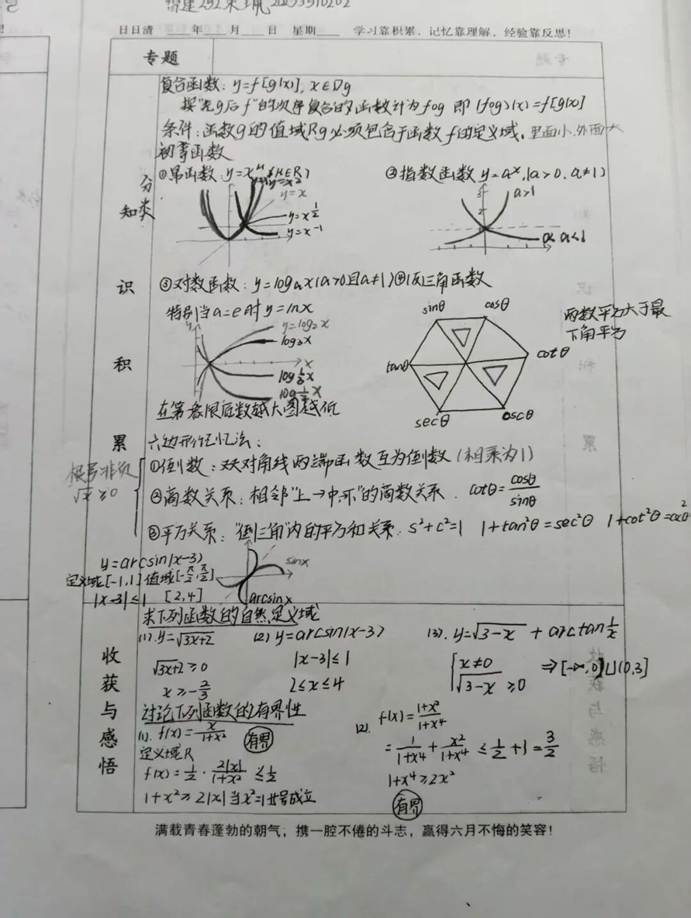 日日清 年 月 日 星期 学习靠积累，记忆靠理解，经验靠反思！
专题
复合函数：y=f[g(x)], x∈Dg
按"先g后f"的次序复合的函数计为fog 即 (fog)(x)=f[g(x)]
条件：函数g的值域Rg必须包含于函数f的定义域，里面小，外面大
初等函数
分类
①幂函数 y=x^μ (μ∈R) ②指数函数 y=a^x, (a>0, a≠1)
y=x²
y=x
y=x^½
y=x⁻¹
a>1
0<a<1
③对数函数：y=logₐx(a>0且a≠1) ④(反)三角函数
特别当a=e时 y=lnx
y=log₂x
log₃x
x
log⅓x
log½x
在第一象限底数越大图越低
sinθ cosθ
tanθ cotθ
secθ cscθ
两数平方大于最
下角平方
知
识
积
累
六边形记忆法：
根号非负
√x ≥0
①倒数：对角线两端函数互为倒数（相乘为1）
②商数关系：相邻"上→中→下"的商数关系. cotθ=cosθ/sinθ
③平方关系："倒三角"内的平方和关系. s²+c²=1 1+tan²θ=sec²θ 1+cot²θ=csc²θ
y=arcsin(x-3)
定义域[-1,1] 值域[-π/2,π/2]
|x-3|≤1 [2,4]
sinx
arcsinx
收
获
与
感
悟
求下列函数的自然定义域
(1). y=√3x+2 (2) y=arcsin(x-3) (3). y=√3-x + arctan 1/x
√3x+2 ≥0 |x-3|≤1 { x≠0
x≥-2/3 2≤x≤4 √3-x ≥0 ⇒[-∞,0)∪(0,3]
讨论下列函数的有界性
(1). f(x)=x/1+x² 有界
定义域R
f(x)=½·2|x|/1+x² ≤½
1+x²≥2|x| 当x²=1时等号成立
(2). f(x)=1+x²/1+x⁴
=1/1+x⁴+x²/1+x⁴ ≤½+1=3/2
1+x⁴≥2x²
有界
满载青春蓬勃的朝气，携一腔不倦的斗志，赢得六月不悔的笑容！